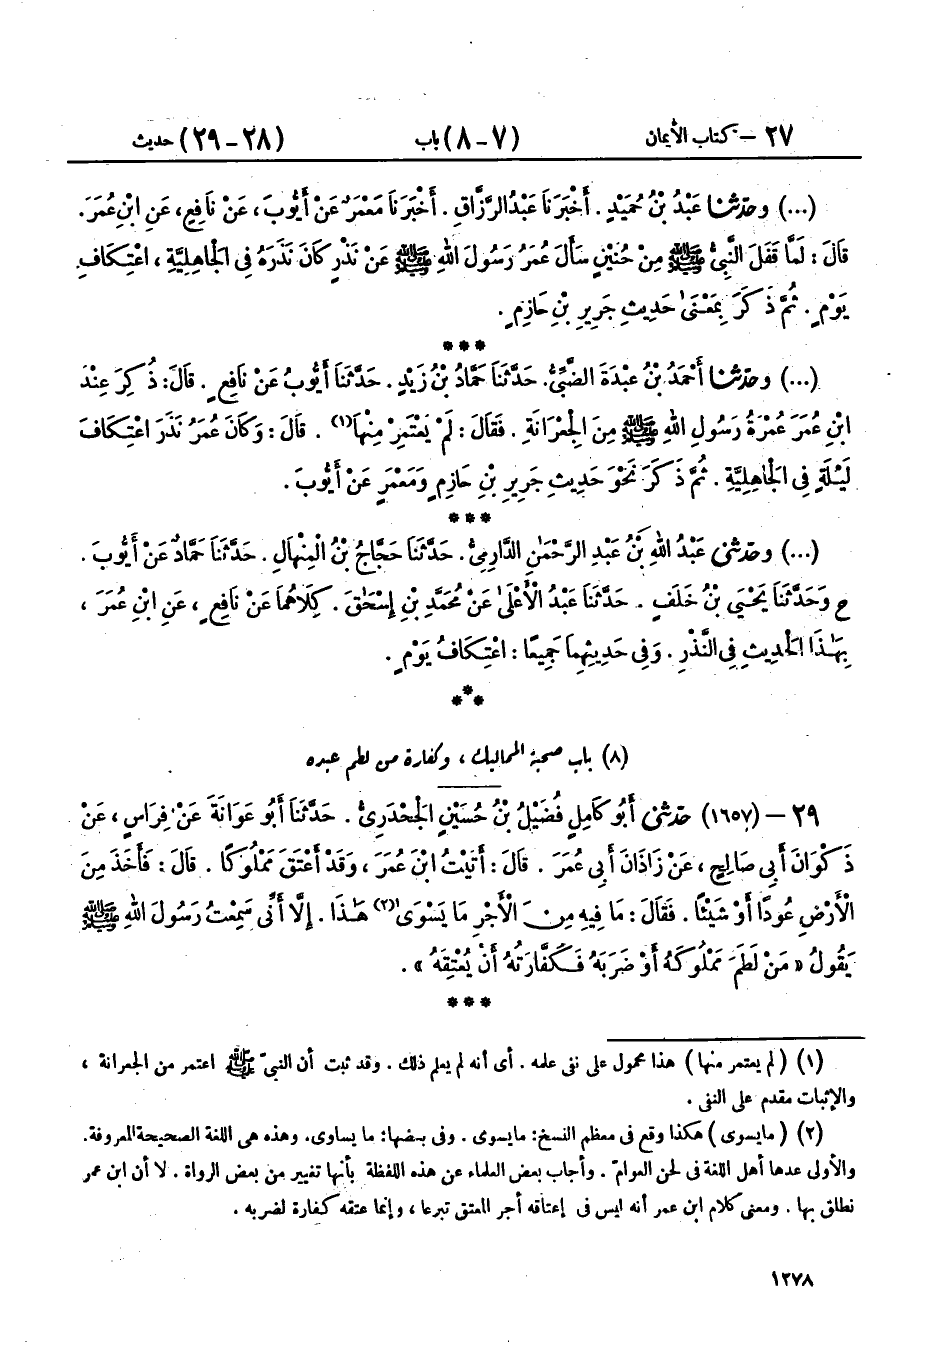 ٢٧ – كتاب الأيمان (٧ – ٨) باب (٢٨ – ٢٩) حديث
(...) وحدّثنا عَبْدُ بْنُ حُمَيْدٍ . أَخْبَرَنَا عَبْدُ الرَّزَّاقِ . أَخْبَرَنَا مَعْمَرٌ عَنْ أَيُّوبَ ، عَنْ نَافِعٍ ، عَنِ ابْنِ عُمَرَ .
قَالَ : لَمَّا قَفَلَ النَّبِيُّ ﷺ مِنْ حُنَيْنٍ سَأَلَ عُمَرُ رَسُولَ اللهِ ﷺ عَنْ نَذْرٍ كَانَ نَذَرَهُ فِي الْجَاهِلِيَّةِ ، اعْتِكَافِ
يَوْمٍ . ثُمَّ ذَكَرَ بِمَعْنَىٰ حَدِيثِ جَرِيرِ بْنِ حَازِمٍ .
***
(...) وحدّثنا أَحْمَدُ بْنُ عَبْدَةَ الضَّبِّيُّ. حَدَّثَنَا حَمَّادُ بْنُ زَيْدٍ . حَدَّثَنَا أَيُّوبُ عَنْ نَافِعٍ . قَالَ: ذُكِرَ عِنْدَ
ابْنِ عُمَرَ عُمْرَةُ رَسُولِ اللهِ ﷺ مِنَ الْجِعْرَانَةِ . فَقَالَ : لَمْ يَعْتَمِرْ مِنْهَا(١) . قَالَ : وَكَانَ عُمَرُ نَذَرَ اعْتِكَافَ
لَيْلَةٍ فِي الْجَاهِلِيَّةِ . ثُمَّ ذَكَرَ نَحْوَ حَدِيثِ جَرِيرِ بْنِ حَازِمٍ وَمَعْمَرٍ عَنْ أَيُّوبَ .
***
(...) وحدّثني عَبْدُ اللهِ بْنُ عَبْدِ الرَّحْمَٰنِ الدَّارِمِيُّ. حَدَّثَنَا حَجَّاجُ بْنُ الْمِنْهَالِ . حَدَّثَنَا حَمَّادٌ عَنْ أَيُّوبَ .
ح وَحَدَّثَنَا يَحْيَى بْنُ خَلَفٍ . حَدَّثَنَا عَبْدُ الْأَعْلَىٰ عَنْ مُحَمَّدِ بْنِ إِسْحَٰقَ . كِلَاهُمَا عَنْ نَافِعٍ ، عَنِ ابْنِ عُمَرَ ،
بِهَٰذَا الْحَدِيثِ فِي النَّذْرِ . وَفِي حَدِيثِهِمَا جَمِيعًا : اعْتِكَافُ يَوْمٍ .
***
(٨) باب صحبة المماليك ، وكفارة من لطم عبده
٢٩ – (١٦٥٧) حدّثني أَبُو كَامِلٍ فُضَيْلُ بْنُ حُسَيْنٍ الْجَحْدَرِيُّ . حَدَّثَنَا أَبُو عَوَانَةَ عَنْ فِرَاسٍ ، عَنْ
ذَكْوَانَ أَبِي صَالِحٍ ، عَنْ زَاذَانَ أَبِي عُمَرَ . قَالَ : أَتَيْتُ ابْنَ عُمَرَ ، وَقَدْ أَعْتَقَ مَمْلُوكًا . قَالَ : فَأَخَذَ مِنَ
الْأَرْضِ عُودًا أَوْ شَيْئًا . فَقَالَ : مَا فِيهِ مِنَ الْأَجْرِ مَا يَسْوَى(٢) هَٰذَا . إِلَّا أَنِّي سَمِعْتُ رَسُولَ اللهِ ﷺ
يَقُولُ « مَنْ لَطَمَ مَمْلُوكَهُ أَوْ ضَرَبَهُ فَكَفَّارَتُهُ أَنْ يُعْتِقَهُ » .
***
(١) (لم يعتمر منها) هذا محمول على نفي علمه . أي أنه لم يعلم ذلك . وقد ثبت أن النبيّ ﷺ اعتمر من الجعرانة ،
والإثبات مقدم على النفي .
(٢) (مايسوى) هكذا وقع في معظم النسخ: مايسوى . وفي بعضها: ما يساوى. وهذه هي اللغة الصحيحة المعروفة.
والأولى عدها أهل اللغة في لحن العوامّ . وأجاب بعض العلماء عن هذه اللفظة بأنها تغيير من بعض الرواة . لا أن ابن عمر
نطلق بها . ومعنى كلام ابن عمر أنه ليس في إعتاقه أجر المعتق تبرعا ، وإنما عتقه كفارة لضربه .
١٢٧٨